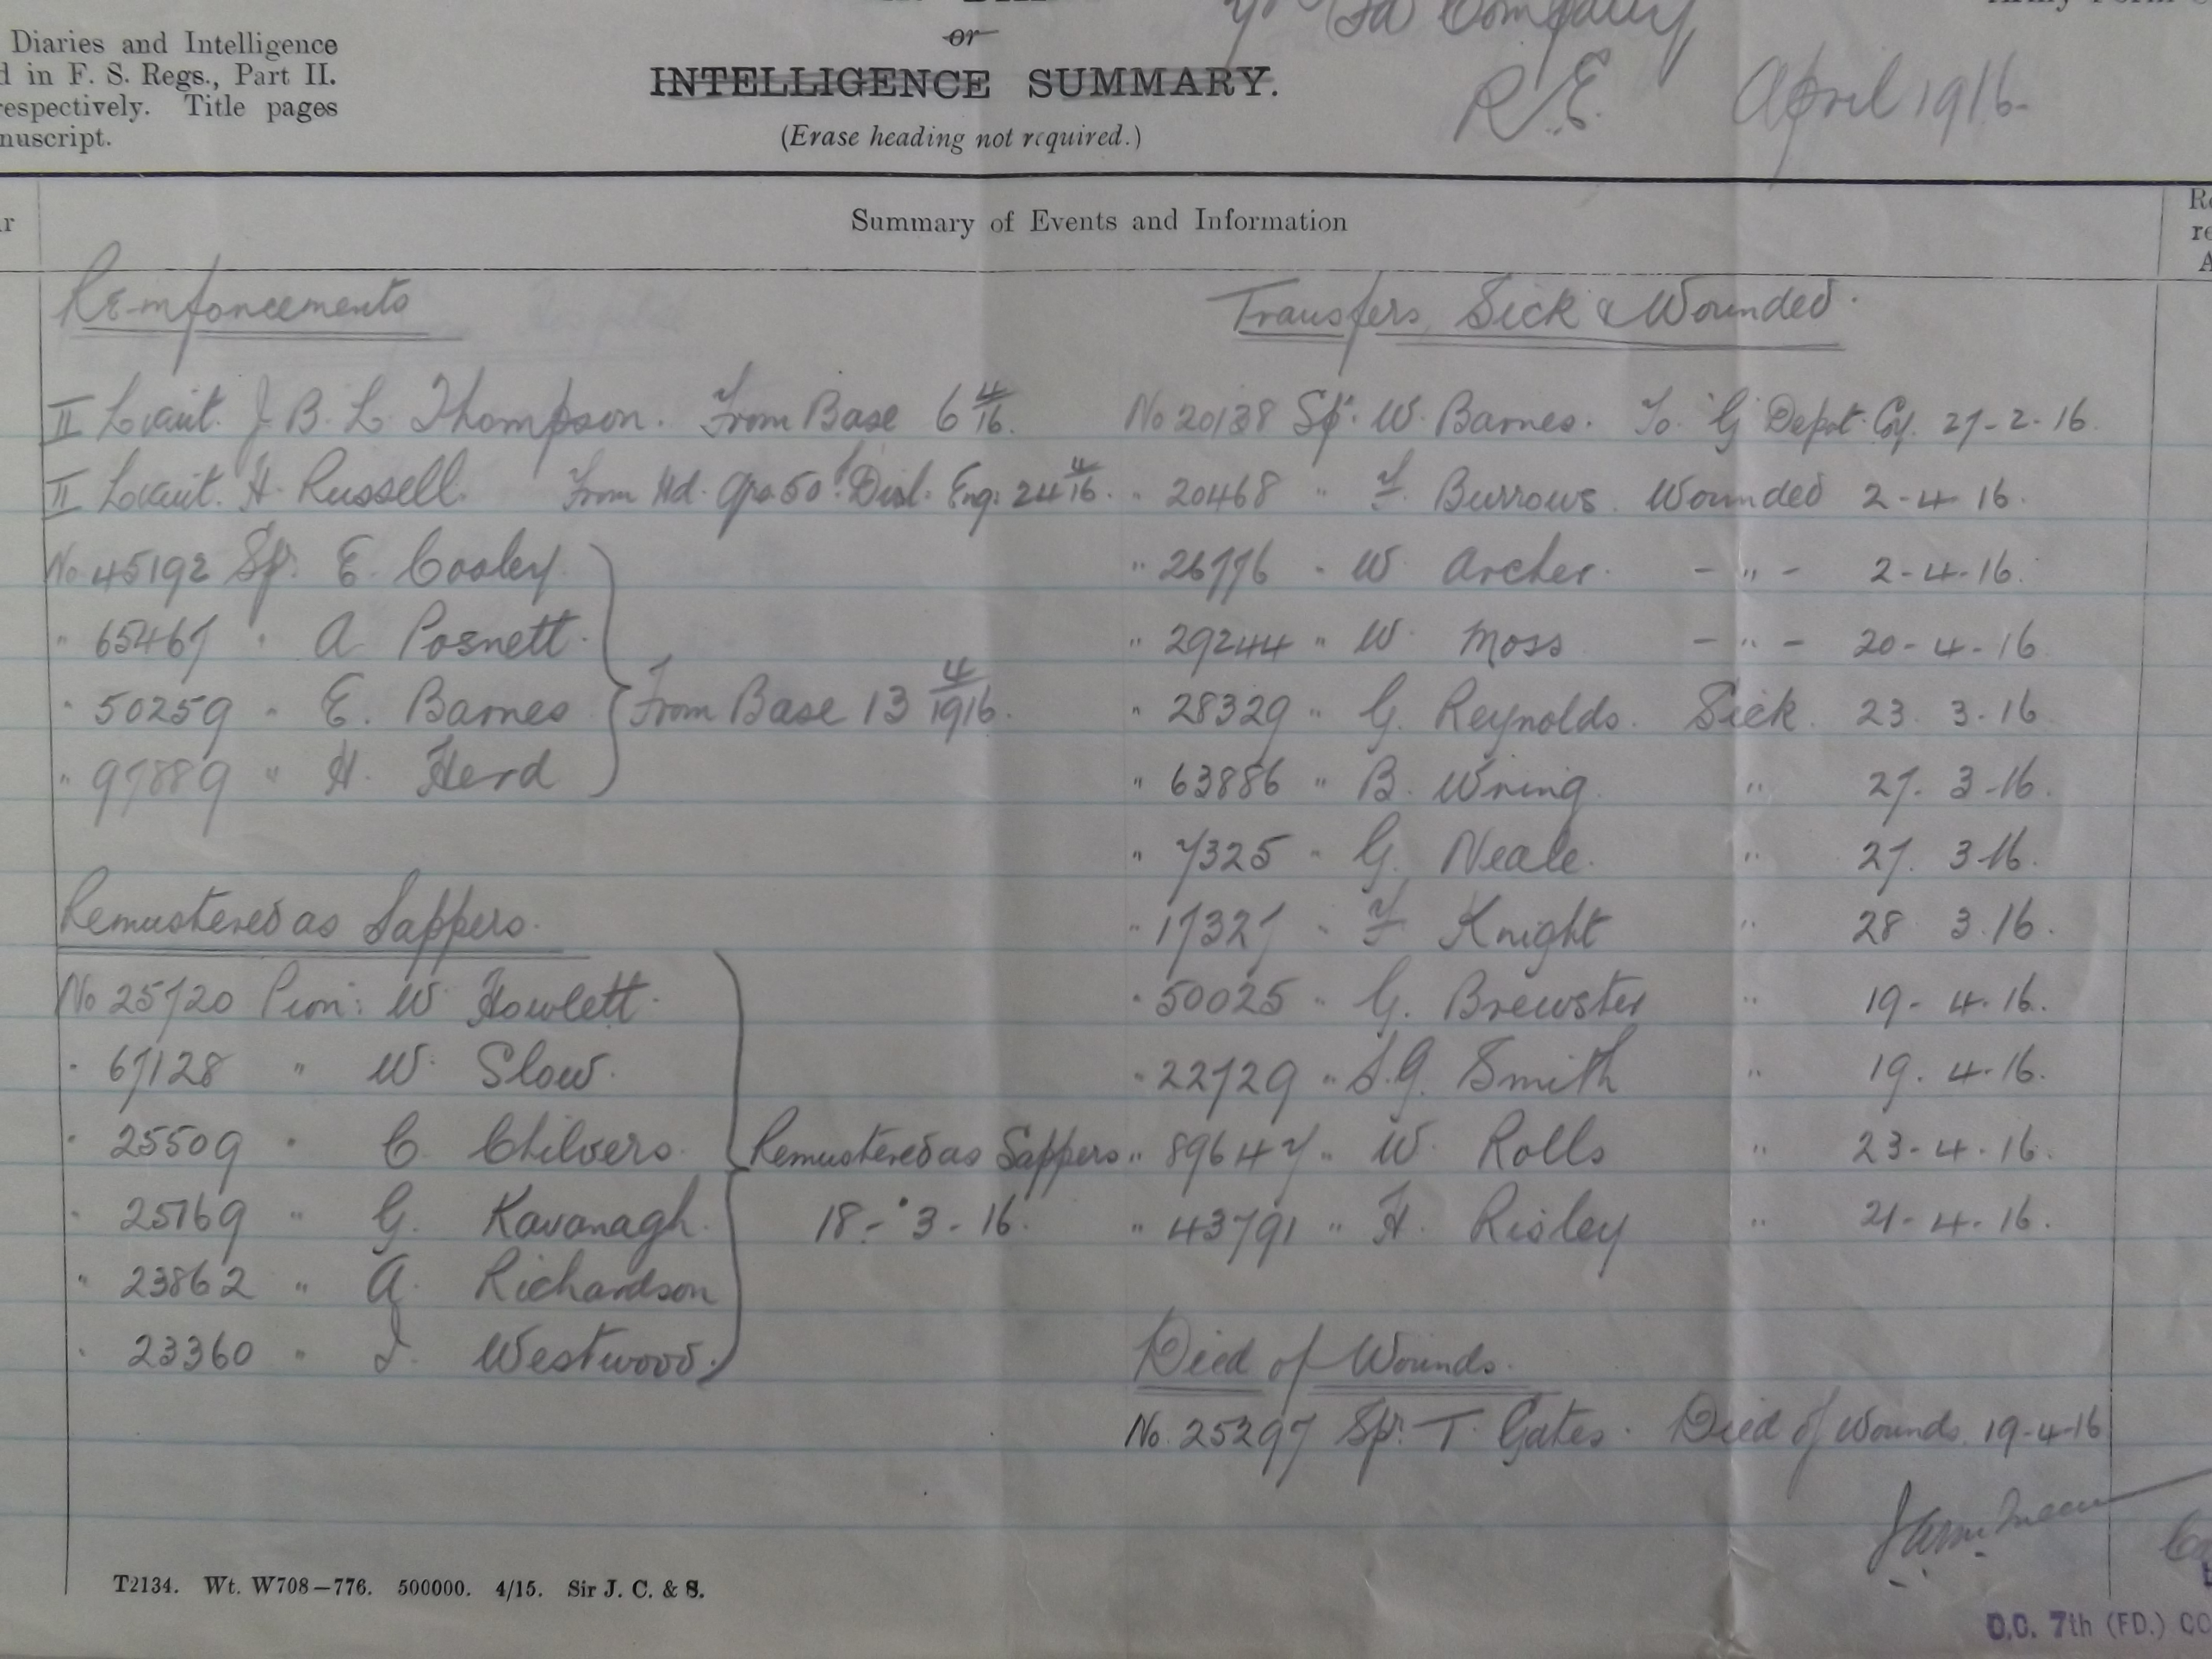 Diaries and Intelligence
in F. S. Regs., Part II.
respectively. Title pages
manuscript.
or
INTELLIGENCE SUMMARY.
(Erase heading not required.)
7th Fd Company
R.E. April 1916.
Summary of Events and Information
Reinforcements
II Lieut. J. B. L. Thompson. From Base 6 4/16.
II Lieut. H. Russell. From Hd. Qrs. 50th Divl. Eng: 24 4/16.
No 45192 Spr. E. Cooley.
" 65467 " A Posnett.
" 50259 " E. Barnes
" 97889 " H. Herd
From Base 13 4/1916.
Remustered as Sappers.
No 25720 Pion: W Howlett.
" 67128 " W. Slow.
" 25509 " C Chilvers.
" 25769 " G. Kavanagh.
" 23862 " A. Richardson
" 23360 " J. Westwood.
Remustered as Sappers
18 - 3 - 16.
Transfers, Sick & Wounded.
No 20138 Spr. W. Barnes. To G Depot Coy. 27-2-16.
" 20468 " F. Burrows. Wounded 2-4-16.
" 26776 " W Archer. - " - 2-4-16.
" 29244 " W. Moss - " - 20-4-16
" 28329 " G. Reynolds. Sick. 23. 3-16
" 63886 " B. Wring. " 27. 3-16.
" 7325 " G. Neale. " 27. 3-16.
" 17327 " F Knight " 28 3.16.
" 50025 " G. Brewster " 19-4-16.
" 22729 " S.G. Smith " 19.4-16.
" 89647 " W. Rolls " 23-4-16.
" 43791 " H. Risley " 21-4-16.
Died of Wounds.
No. 25297 Spr. T. Gates. Died of Wounds. 19-4-16
T2134. Wt. W708-776. 500000. 4/15. Sir J. C. & S.
O.C. 7th (FD.) CO